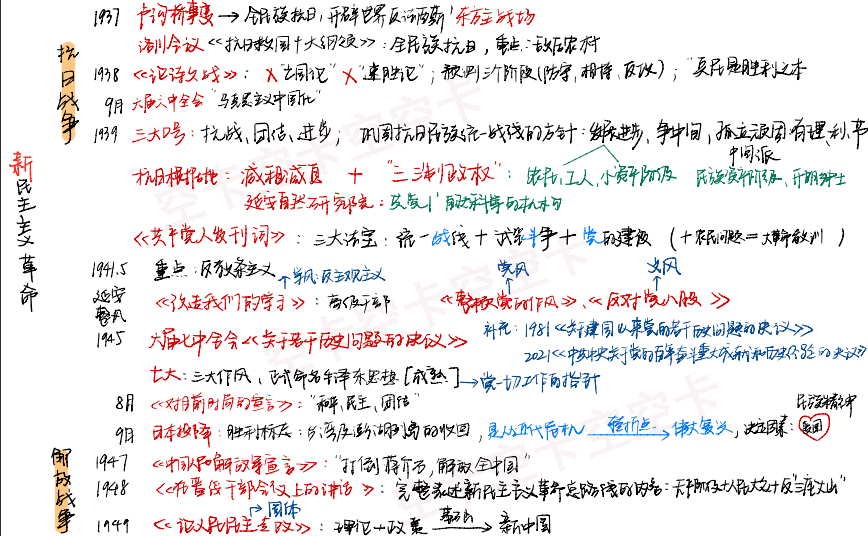 新民主主义革命
抗日战争
1937 卢沟桥事变→全民族抗日，开辟世界反法西斯东方主战场
洛川会议《抗日救国十大纲领》：全民族抗日，重点：敌后农村
1938 《论持久战》：X"亡国论" X"速胜论"；预测三个阶段(防守，相持，反攻)；"兵民是胜利之本
9月 六届六中全会"马克思主义中国化"
1939 三大口号：抗战、团结、进步；巩固抗日民族统一战线的方针：发展进步，争中间，孤立顽固 有理、利、节
中间派
抗日根据地：减租减息 + "三三制政权"：农民，工人，小资产阶级 民族资产阶级、开明绅士
延安自然科学研究院：
《共产党人发刊词》：三大法宝：统一战线+武装斗争+党的建设 (+农民问题=大革命教训)
1941.5 重点：反对教条主义
学风：反主观主义 党风 文风
延安整风 《改造我们的学习》：高级干部 《整顿党的作风》、《反对党八股》
1945 六届七中全会《关于若干历史问题的决议》 补充：1981《关于建国以来党的若干历史问题的决议》
2021《中共中央关于党的百年奋斗重大成就和历史经验的决议》
七大：三大作风，正式命名毛泽东思想[成熟]→党一切工作的指针
8月 《对目前时局的宣言》："和平，民主，团结"
民族
9月 日本投降：胜利标志：台湾及澎湖列岛的收回，是 近代 转折点→伟大复兴，决定因素：
解放战争
1947 《中国人民解放军宣言》："打倒蒋介石，解放全中国"
1948 《在晋绥干部会议上的讲话》：完整表述新民主主义革命总路线的内容：无产阶级+人民大众+反"三座大山"
国体
1949 《论人民民主专政》：理论+政策 基础→新中国
空卡空空卡
空卡空卡空卡